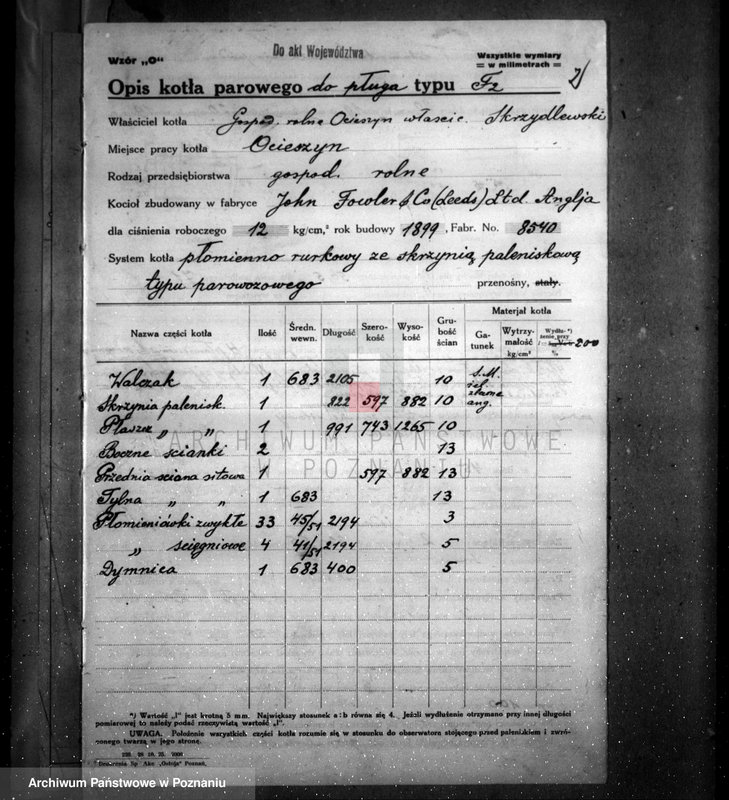 Wzór „O“
Do akt Województwa
Wszystkie wymiary
w milimetrach
Opis kotła parowego do pługa typu Fz 2)
Właściciel kotła Gospod. rolne Ocieszyn właścic. Skrzydlewski
Miejsce pracy kotła Ocieszyn
Rodzaj przedsiębiorstwa gospod. rolne
Kocioł zbudowany w fabryce John Fowler & Co (Leeds) Ltd. Anglja
dla ciśnienia roboczego 12 kg/cm,² rok budowy 1899, Fabr. No. 8540
System kotła płomienno rurkowy ze skrzynią paleniskową
typu parowozowego przenośny, stały.
Nazwa części kotła Ilość Średn. wewn. Długość Szerokość Wysokość Grubość ścian Materjał kotła
Gatunek Wytrzymałość kg/cm² Wydłużenie przy 200 %
Walczak 1 683 2105 10 S.M.
Skrzynia palenisk. 1 822 597 882 10 ang.
Płaszcz „ „ 1 991 743 1265 10
Boczne ścianki 2 13
Przednia ściana sitowa 1 597 882 13
Tylna „ „ 1 683 13
Płomieniówki zwykłe 33 45/51 2194 3
„ ścięgniowe 4 41/51 2194 5
Dymnica 1 683 400 5
ARCHIWUM PAŃSTWOWE
W POZNANIU
*) Wartość „l“ jest krotną 5 mm. Największy stosunek a:b równa się 4. Jeżeli wydłużenie otrzymano przy innej długości
pomiarowej to należy podać rzeczywistą wartość „l“.
UWAGA. Położenie wszystkich części kotła rozumie się w stosunku do obserwatora stojącego przed paleniskiem i zwróconego twarzą w jego stronę.
Archiwum Państwowe w Poznaniu